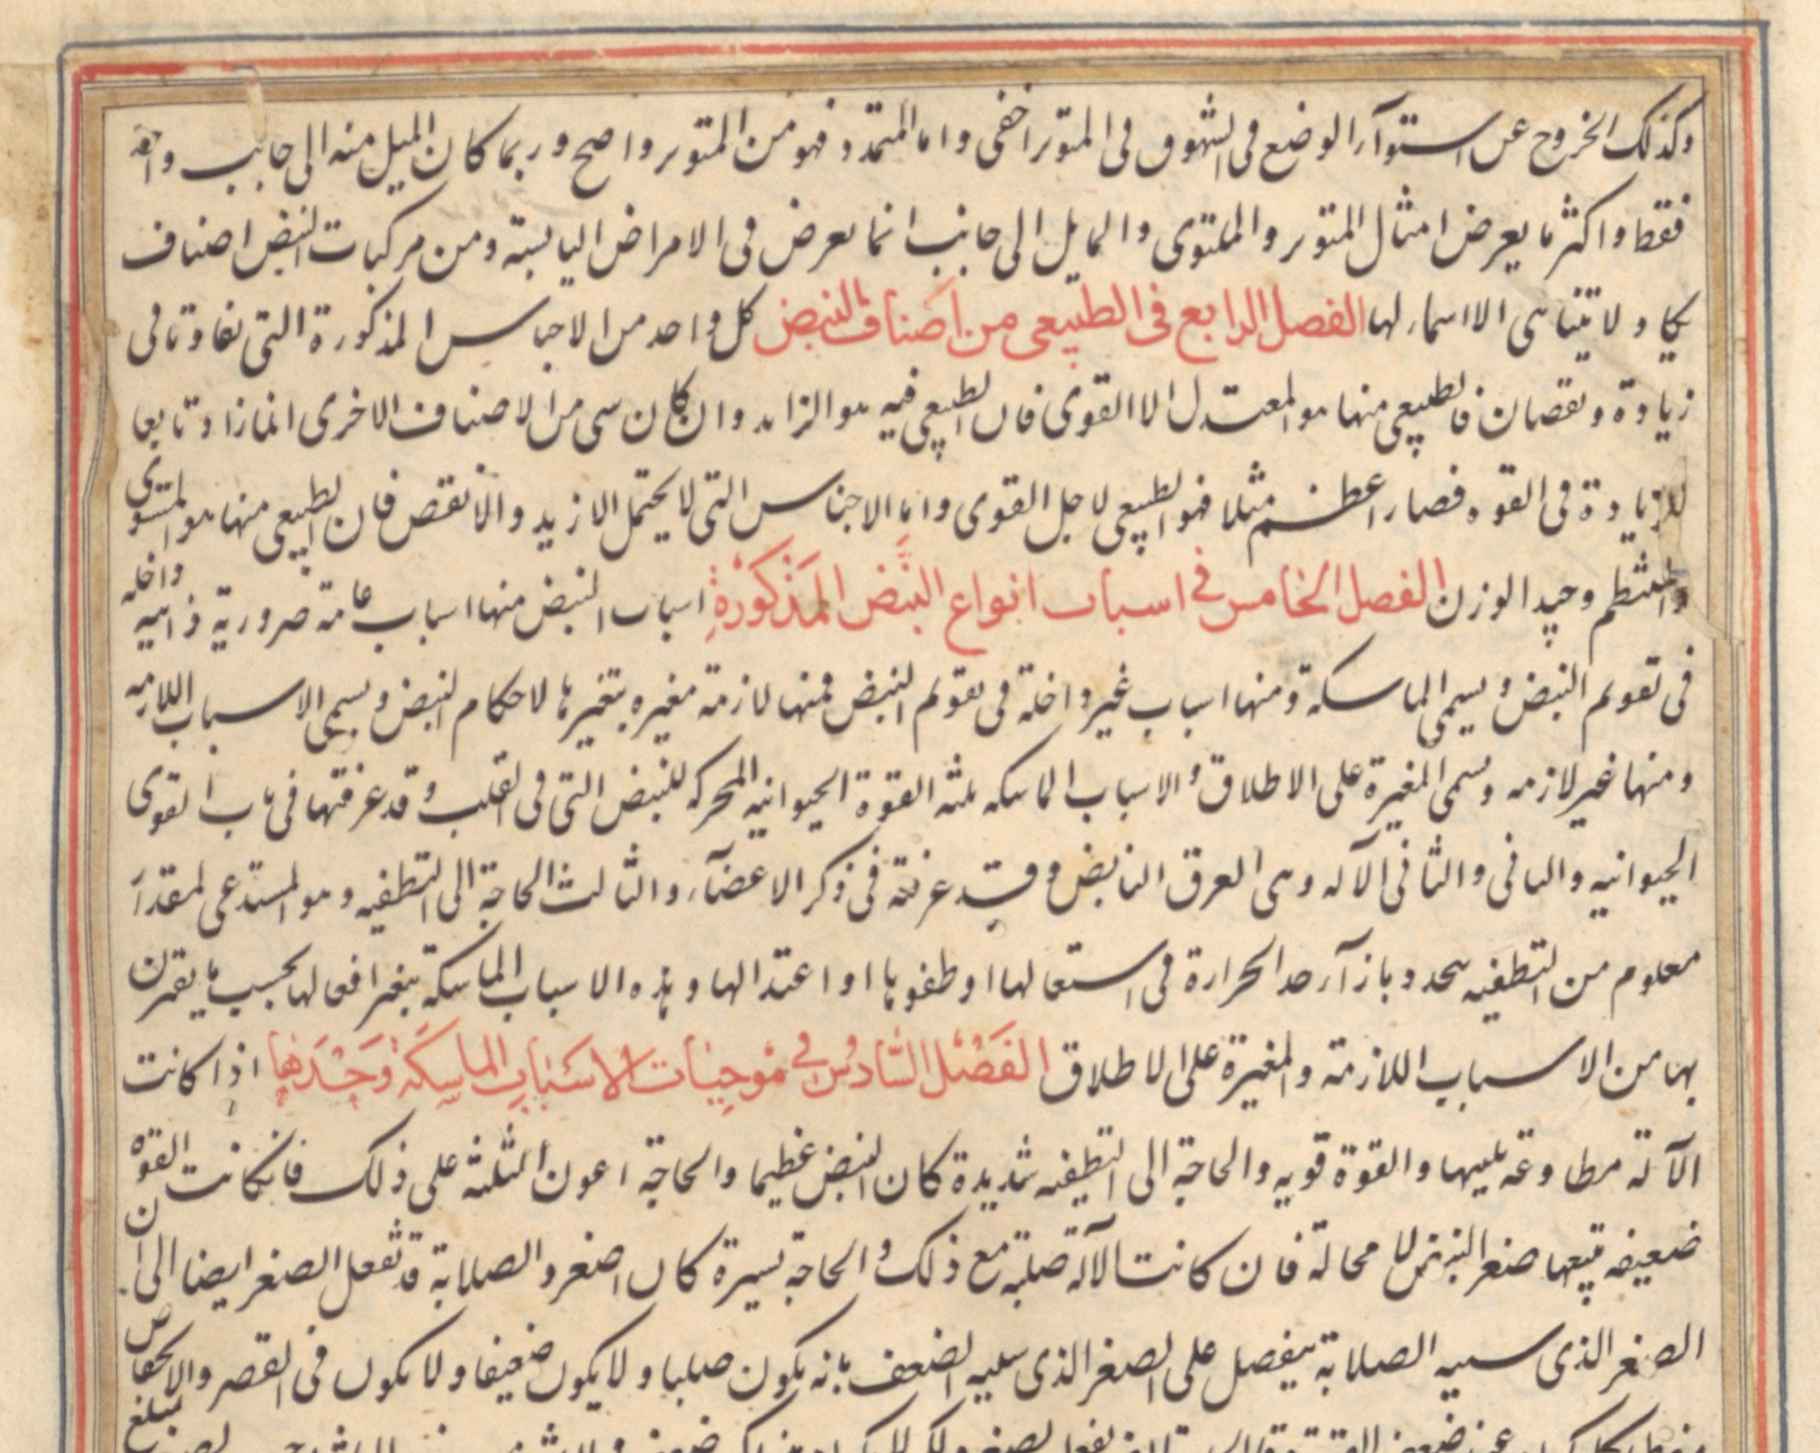 وكذلك الخروج عن استوآء الوضع فى الشهوق فى المتوتر اخفى واما التمدد فهو من المتوتر واضح وربما كان الميل منه الى جانب واحد
فقط واكثر ما يعرض امثال المتوتر والملتوى والمايل الى جانب انما يعرض فى الامراض اليابسة ومن مركبات النبض اصناف
يكاد لا يتناهى الا اسماء لها الفصل الرابع فى الطبيعى من اصناف النبض كل واحد من الاجناس المذكورة التى تفاوتا فى
زيادة ونقصان فالطبيعى منها هو المعتدل الا القوى فان الطبيعى فيه هو الزايد وان كان سى من الاصناف الاخرى انما زاد تابعا
للزيادة فى القوه فصار اعظم مثلا فهو الطبيعى لاجل القوى واما الاجناس التى لا يحتمل الازيد والانقص فان الطبيعى منها هو المستوى
والمنتظم وجيد الوزن الفصل الخامس فى اسباب انواع النبض المذكورة اسباب النبض منها اسباب عامة ضرورية ذاتيه داخله
فى تقويم النبض ويسمى الماسكة ومنها اسباب غير داخلة فى تقويم النبض فمنها لازمة مغيره بتغيرها لاحكام النبض ويسمى الاسباب اللازمه
ومنها غير لازمه ويسمى المغيرة على الاطلاق والاسباب الماسكه ثلثه القوة الحيوانيه المحركه للنبض التى فى القلب وقد عرفتها فى باب القوى
الحيوانيه والثانى الآله وهى العرق النابض وقد عرفته فى ذكر الاعضآء والثالث الحاجة الى التطفيه وهو المستدعى لمقدار
معلوم من التطفيه يتحدد بازآء حد الحرارة فى استعمالها او طفوها او اعتدالها وهذه الاسباب الماسكة يتغير افعالها بحسب ما يقترن
بها من الاسباب اللازمة والمغيرة على الاطلاق الفصل السادس فى موجبات الاسباب الماسكة وحدها اذا كانت
الآلة مطاوعة للينها والقوة قويه والحاجة الى التطفيه شديدة كان النبض عظيما والحاجة اعون الثلثة على ذلك فان كانت القوه
ضعيفه يتبعها صغر النبض لا محالة فان كانت الآلة صلبة مع ذلك والحاجة يسيرة كان اصغر والصلابة قد تفعل الصغر ايضا الى ان
الصغر الذى سببه الصلابة ينفصل على الصغر الذى سببه الضعف بانه يكون صلبا ولا يكون ضعيفا ولا يكون فى القصر والانخفاض